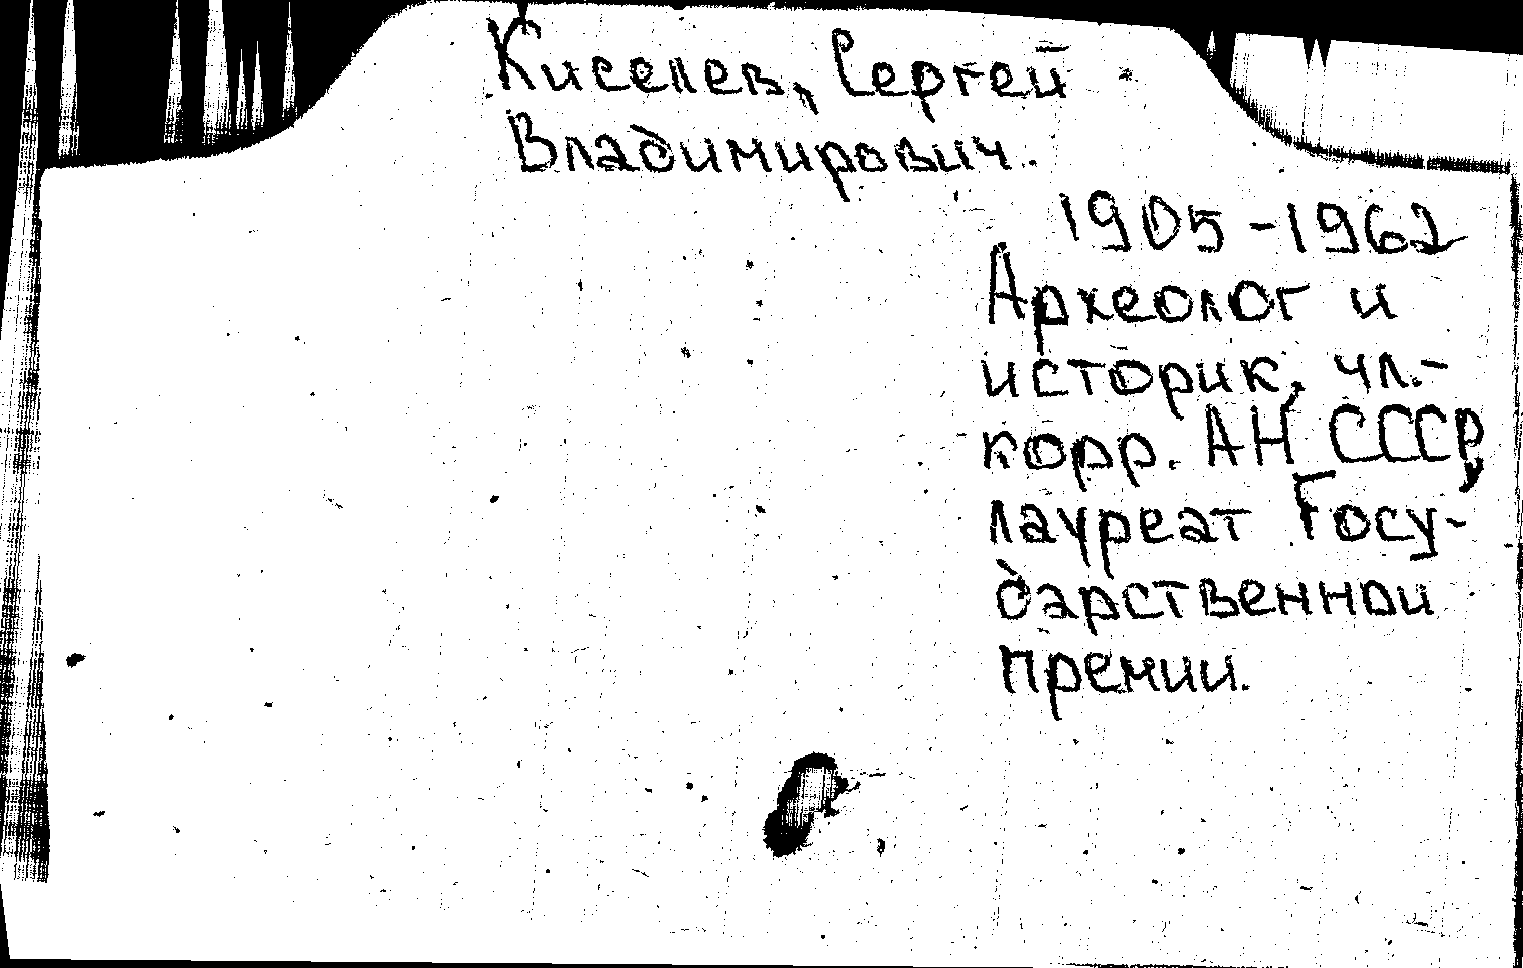 Киселев, Сергей
Владимирович.
1905-1962
Археолог и
историк, чл.-
корр. АН СССР,
лауреат Госу-
дарственной
премии.